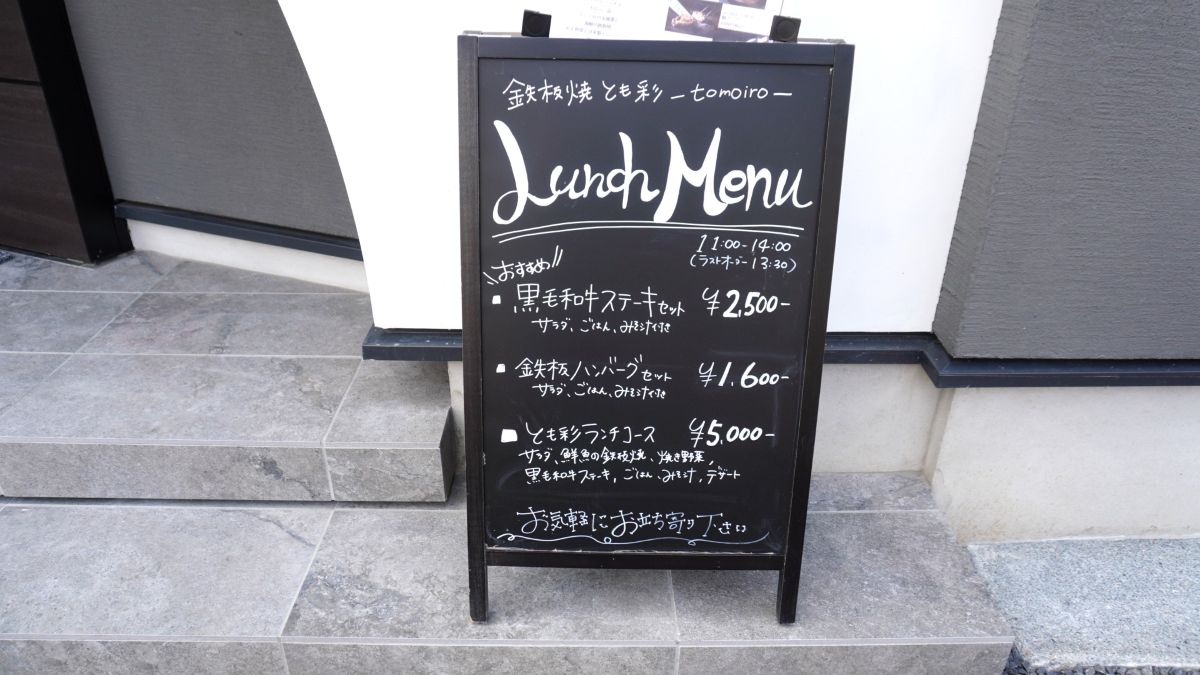 鉄板焼 とも彩 ー tomoiro ー
Lunch Menu
11:00-14:00
(ラストオーダー 13:30)
おすすめ
黒毛和牛ステーキセット ¥2,500-
サラダ、ごはん、みそ汁付き
鉄板ハンバーグセット ¥1,600-
サラダ、ごはん、みそ汁付き
とも彩ランチコース ¥5,000-
サラダ、鮮魚の鉄板焼、焼き野菜,
黒毛和牛ステーキ, ごはん、みそ汁, デザート
お気軽にお立ち寄り下さい